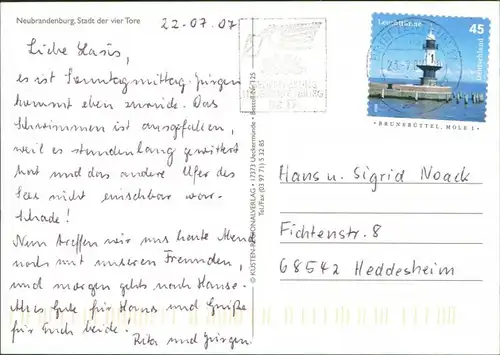 Neubrandenburg, Stadt der vier Tore
22.07.07
Liebe
es ist Sonntagmittag. Jürgen
kommt eben zurück. Das
Schwimmen ist ausgefallen,
weil es stundenlang gewittert
hat und das andere Ufer des
Sees nicht einsehbar war.
Schade!
Nun treffen wir uns heute Abend
noch mit unseren Freunden,
und morgen gehts nach Hause.
Alles Gute für Hans und Grüße
für Euch beide!
Rita und Jürgen
© KÜSTEN-REGIONALVERLAG • 17373 Ueckermünde • Bestell-Nr. 125
Tel/Fax (03 97 71) 5 32 85
Leuchttürme
45
Deutschland
BRUNSBÜTTEL, MOLE 1
Hans u. Sigrid Noack
Fichtenstr. 8
68542 Heddesheim